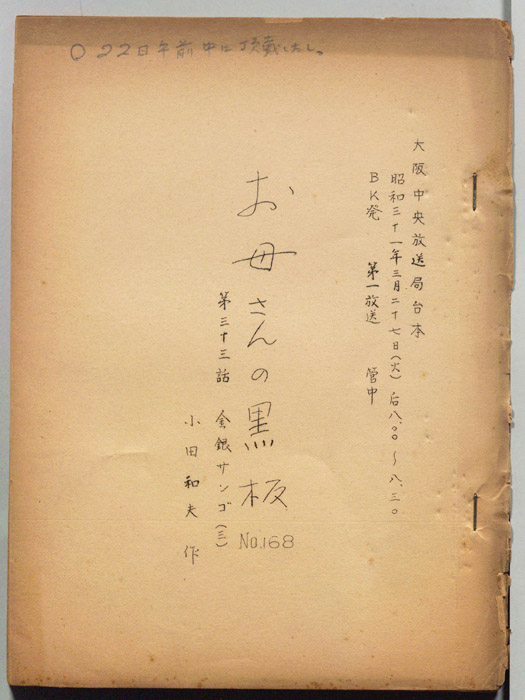 ○ 22日午前中に頂戴したし。
大阪中央放送局台本
昭和三十一年三月二十七日(火) 后八、〇〇～八、三〇
BK発 第一放送 管中
お母さんの黒板
No.168
第三十三話 金銀サンゴ(三)
小田和夫 作